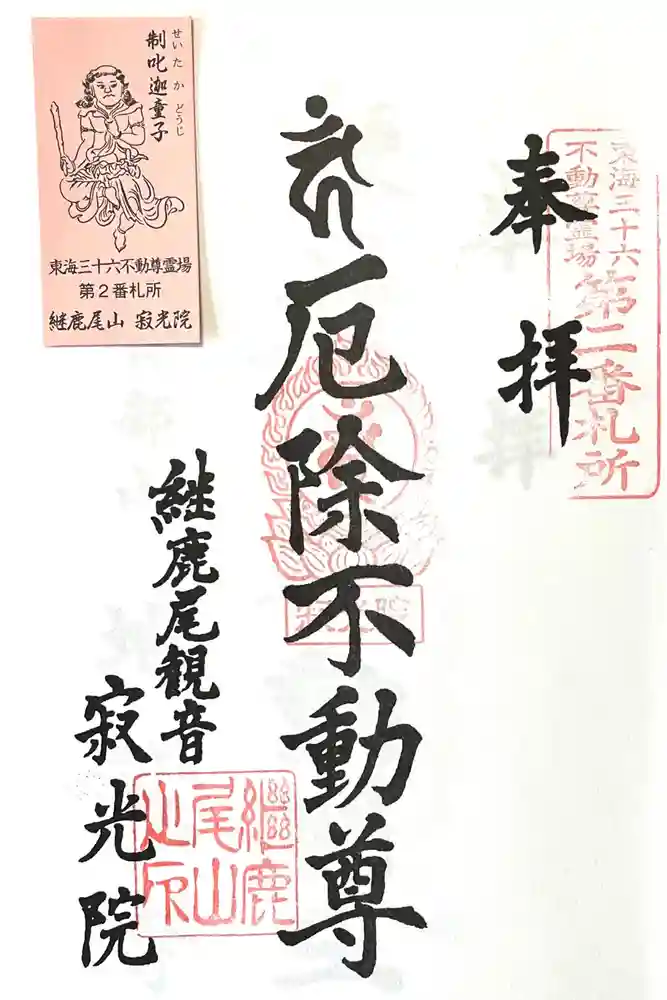 奉拝
東海三十六
不動尊霊場
第二番札所
厄除不動尊
寂光院
継鹿尾観音
寂光院
継鹿
尾山
之印
制吒迦童子
せいたかどうじ
東海三十六不動尊霊場
第2番札所
継鹿尾山 寂光院